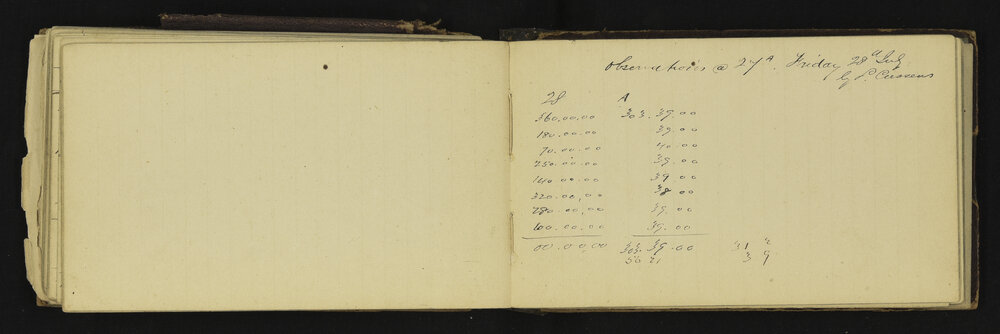 Observations @ 27A. Friday 28d July
by P. Cussens
28 A
360.00.00 303.39.00
180.00.00 39.00
90.00.00 40.00
250.00.00 39.00
140.00.00 39.00
320.00.00 38.00
280.00.00 39.00
100.00.00 39.00
00.00.00 303.39.00 31
56 21 39